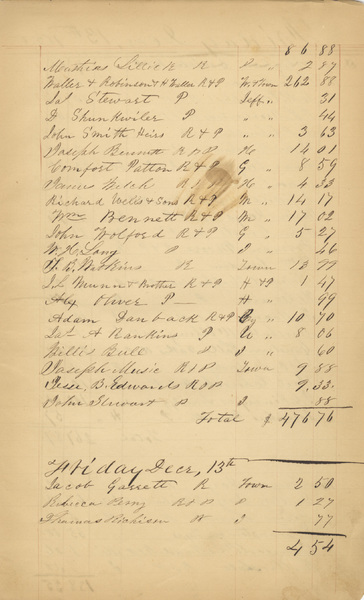 8 6 88
Lillick R 2 87
Waller & Robinson & H Waller R & P W. Town 262 88
Jas Stewart P Jeff,, 31
D Shunkwiler P " 44
John Smith Heirs R & P " 3 63
Joseph Bennett R & P 14 01
Comfort Patton R & P G 8 59
James Welch R & P H 4 33
Richard Wells & Sons R & P M 14 17
Wm Bennett R & P M 17 02
John Wolford R & P G 5 27
W. H. Long P 46
R Town 13 77
J L Munn & Mother R & P H & P 1 47
Alex Oliver P H 99
Adam Danback R & P 10 70
Jas A Rankins P 8 06
Willis Bull P 60
Joseph Music R & P Town 9 88
Jesse B. Edwards R & P 9.33
John Stewart P 88
Total $ 476 76
Friday Decr, 13th
Jacob Garrett R Town 2 50
Rebecca Perry R & P 1 27
Thomas 77
4 54